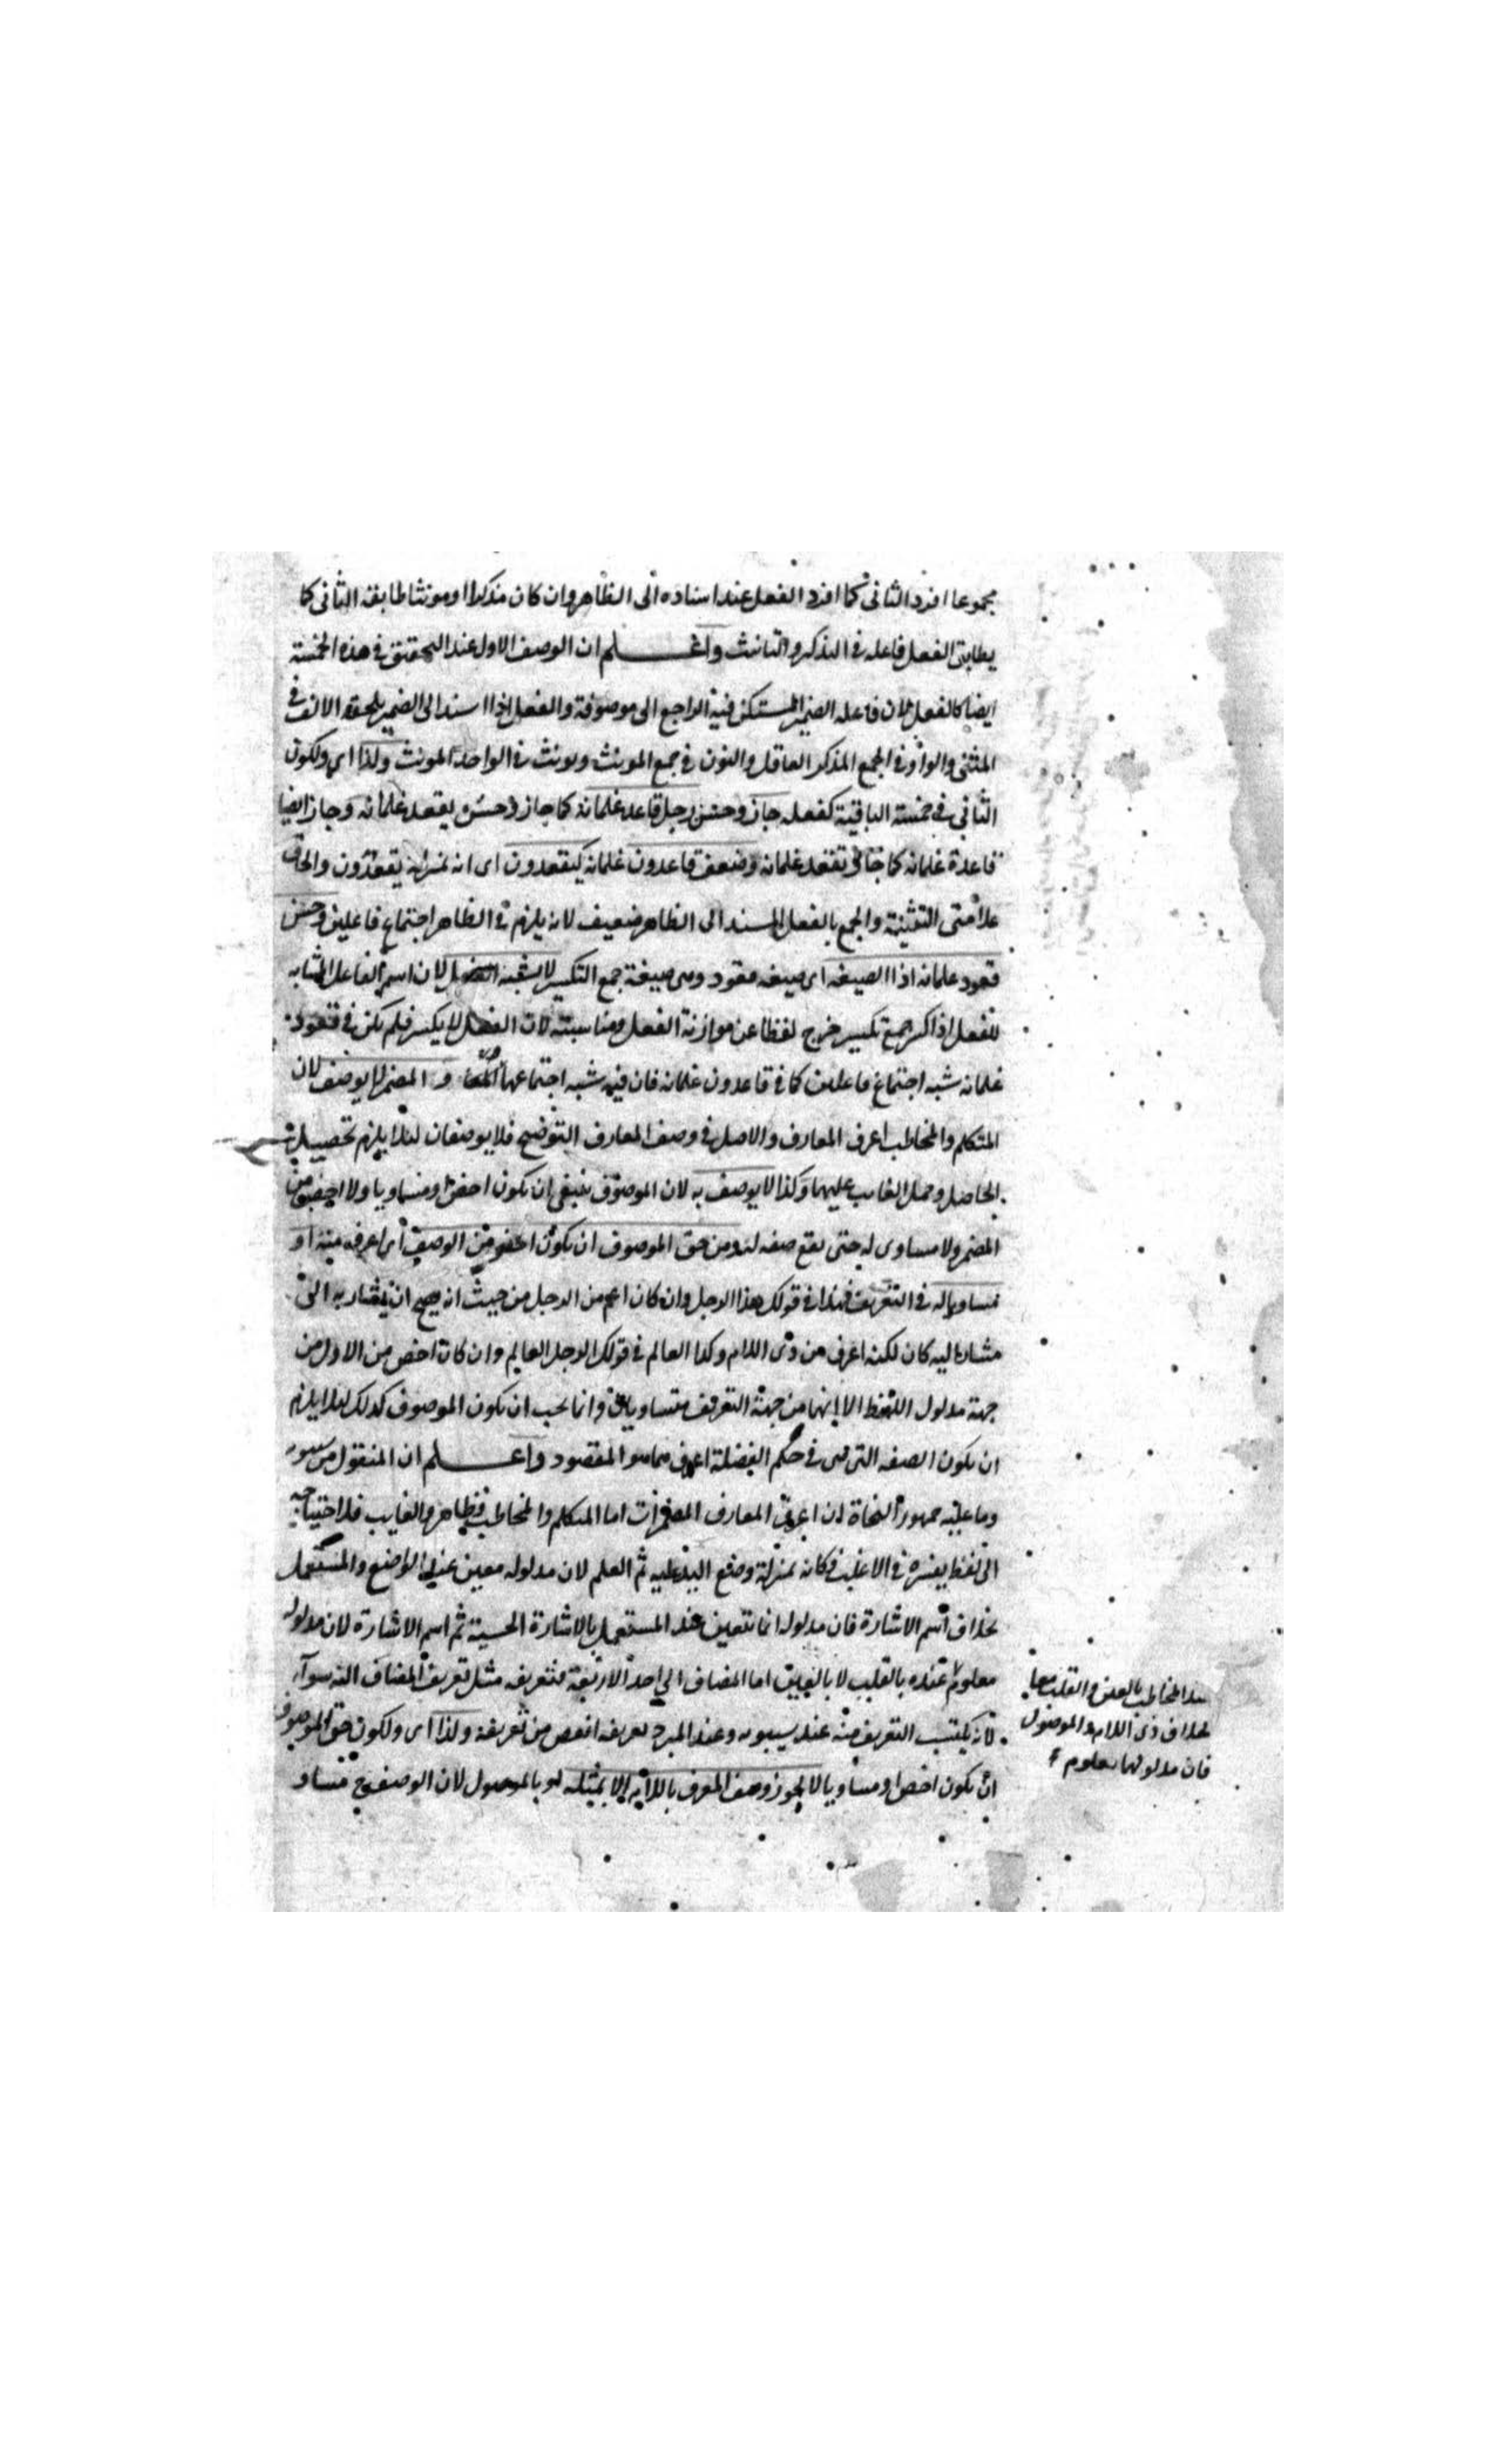 مجموعا افرد الثانى كما افرد الفعل عند اسناده الى الظاهر وان كان مذكرا او مونثا طابقه الثانى كما
يطابق الفعل فاعله فى التذكير والتانيث واعلم ان الوصف الاول عند التحقيق فى هذه الخمسة
ايضا كالفعل لان فاعله الضمير المستكن فيه الراجع الى موصوفه والفعل اذا اسند الى الضمير يلحقه الالف فى
المثنى والواو فى الجمع المذكر العاقل والنون فى جمع المونث ويونث فى الواحد المونث ولذا اى ولكون
الثانى فى خمسة الباقية كفعله جاز وحسن رجل قاعد غلمانه كما جاز وحسن يقعد غلمانه وجاز ايضا
قاعدة غلمانه كما جاز تقعد غلمانه وضعف قاعدون غلمانه كيقعدون اى انه بمنزلة يقعدون والحاق
علامتى التثنية والجمع بالفعل المسند الى الظاهر ضعيف لانه يلزم فى الظاهر اجتماع فاعلين وحسن
قعود غلمانه اذ الصيغه اى صيغه قعود وهى صيغة جمع التكسير لا يشبه الفعل لان اسم الفاعل المشابه
للفعل اذا كسر جمع تكسير خرج لفظا عن موازنة الفعل ومناسبته لان الفعل لا يكسر فلم يكن فى قعود
غلمانه شبه اجتماع فاعلين كما فى قاعدون غلمانه فان فيه شبه اجتماعهما و المضمر لا يوصف لان
المتكلم والمخاطب اعرف المعارف والاصل فى وصف المعارف التوضيح فلا يوصفان لئلا يلزم تحصيل
الحاصل وحمل الغايب عليهما وكذا لا يوصف به لان الموصوف ينبغى ان يكون اخص او مساويا ولا اخص من
المضمر ولا مساوى له حتى يقع صفه له ومن حق الموصوف ان يكون اخص من الوصف اى اعرف منه او
مساويا له فى التعريف فهذا فى قولك هذا الرجل وان كان اعم من الرجل من حيث انه يصح ان يشار به الى
مشار اليه كان لكنه اعرف من ذى اللام وكذا العالم فى قولك الرجل العالم وان كان اخص من الاول من
جهة مدلول اللفظ الا انهما من جهة التعريف متساويان وانما يجب ان يكون الموصوف كذلك لئلا يلزم
ان يكون الصفه التى هى فى حكم الفضلة اعرف مما هو المقصود واعلم ان المنقول من سيبويه
وما عليه جمهور النحاة ان اعرف المعارف المضمرات اما المتكلم والمخاطب فظاهر والغايب فلاحتياجه
الى لفظ يفسره فى الاغلب فكانه بمنزلة وضع اليد عليه ثم العلم لان مدلوله معين عند الواضع والمستعمل
بخلاف اسم الاشارة فان مدلوله انما يتعين عند المستعمل بالاشارة الحسية ثم اسم الاشارة لان مدلوله
معلوم عنده بالقلب لا بالعين اما المضاف الى احد الاربعة فتعريفه مثل تعريف المضاف اليه سواء
لانه يكتسب التعريف منه عند سيبويه وعند المبرد تعريفه انقص من تعريفه ولذا اى ولكون حق الموصوف
ان يكون اخص او مساويا لا يجوز وصف المعرف باللام الا بمثله او بالموصول لان الوصف ح مساو
عند المخاطب بالعين والقلب معا
بخلاف ذى اللام والموصول
فان مدلولهما معلوم